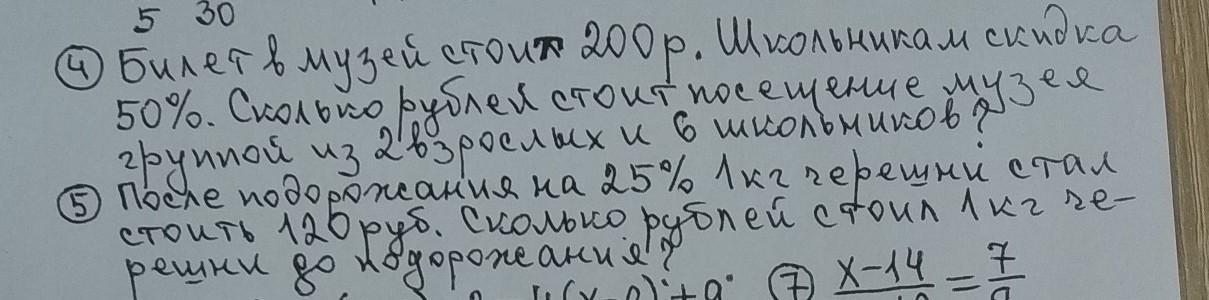 5 30
④ Билет в музей стоит 200р. Школьникам скидка
50%. Сколько рублей стоит посещение музея
группой из 2 взрослых и 6 школьников?
⑤ После подорожания на 25% 1кг черешни стал
стоить 120руб. Сколько рублей стоил 1кг че-
решни до подорожания?
⑦ x-14 = 7